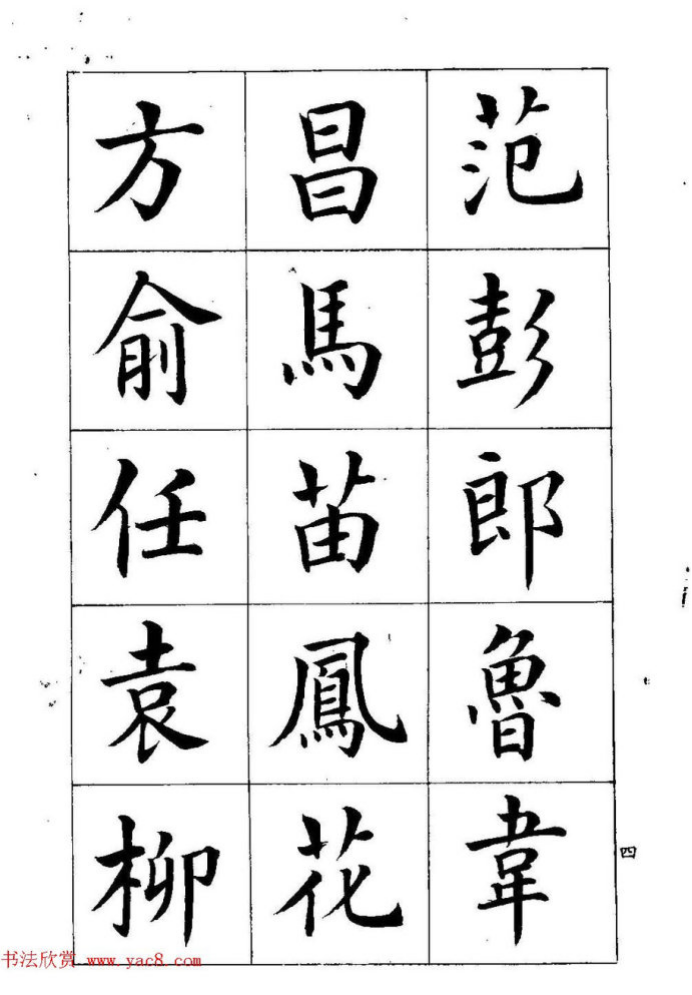 范彭郎魯韋
昌馬苗鳳花
方俞任袁柳
四
书法欣赏 www.yac8.com